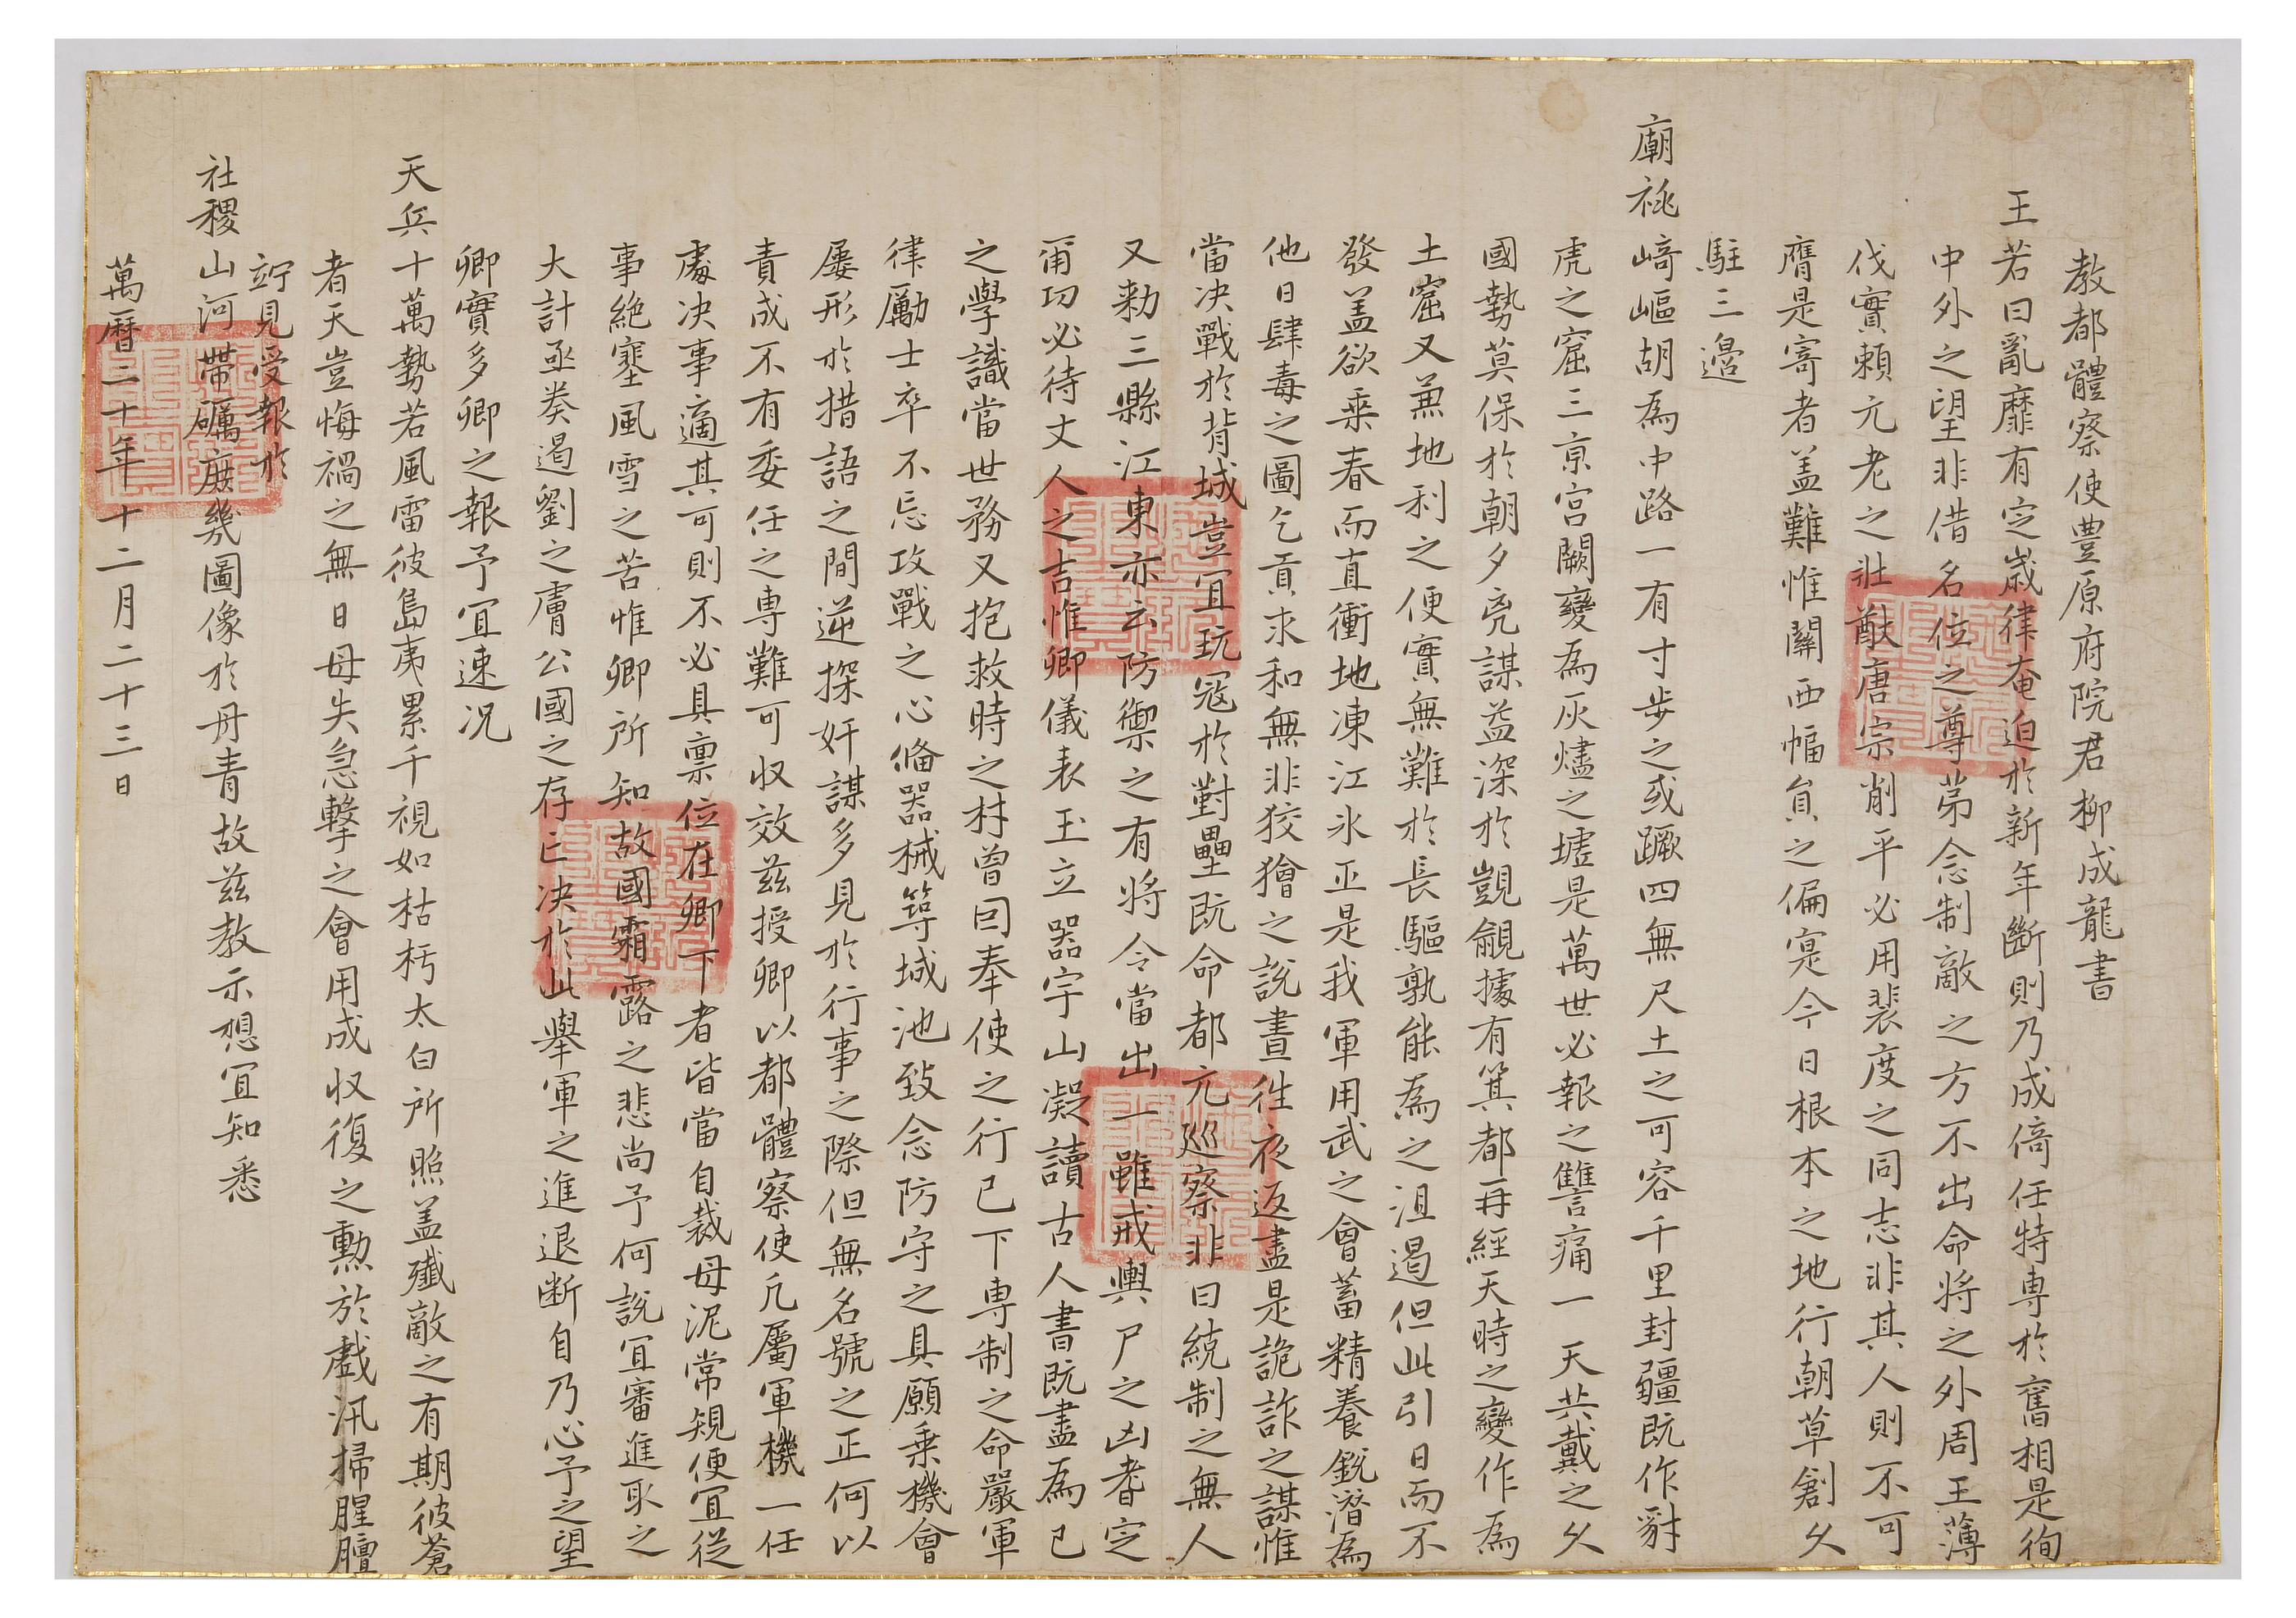 教都體察使豊原府院君柳成龍書
王若曰亂靡有定歲律奄迫於新年斷則乃成倚任特専於舊相是徇
中外之望非借名位之尊苐念制敵之方不出命將之外周王薄
伐實賴元老之壯猷唐宗削平必用裴度之同志非其人則不可
膺是寄者盖難惟關西幅員之偏寔今日根本之地行朝草創久
駐三邉
廟祧崎嶇胡為中路一有寸步之或蹶四無尺土之可容千里封疆既作豺
虎之窟三京宮闕變為灰燼之墟是萬世必報之讐痛一天共戴之久
國勢莫保於朝夕兇謀益深於覬覦據有箕都再經天時之變作為
土窟又兼地利之便實無難於長驅孰能為之沮遏但此引日而不
發盖欲乗春而直衝地凍江氷正是我軍用武之會蓄精養銳潛為
他日肆毒之圖乞貢求和無非狡獪之說晝徃夜返盡是詭詐之謀惟
當决戰於背城豈冝玩寇於對壘既命都元巡察非曰統制之無人
又勑三縣江東亦云防禦之有將令當出一雖戒輿尸之凶耆定
甭功必待丈人之吉惟卿儀表玉立器宇山凝讀古人書既盡為已
之學識當世務又抱救時之材曾回奉使之行已下専制之命嚴軍
律勵士卒不忘攻戰之心偹器械築城池致念防守之具願乗機會
屡形於措語之間逆探奸謀多見於行事之際但無名號之正何以
責成不有委任之専難可収效兹授卿以都體察使凡屬軍機一任
處决事適其可則不必具禀位在卿下者皆當自裁毋泥常規便冝從
事絶塞風雪之苦惟卿所知故國霜露之悲尚予何說冝審進取之
大計亟奏遏劉之膚公國之存亡决於此舉軍之進退断自乃心予之望
卿實多卿之報予冝速况
天兵十萬勢若風雷彼島夷累千視如枯朽太白所照盖殲敵之有期彼蒼
者天豈悔禍之無日毋失急擊之會用成収復之勲於戲汛掃腥膻
竚見受報於
社稷山河帶礪庶幾圖像於丹青故兹教示想冝知悉
萬曆二十年十二月二十三日